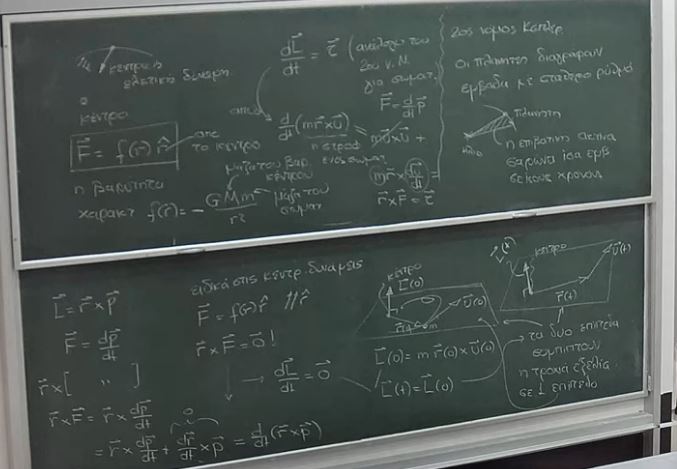 κεντρικη
ελκτικη δυναμη
κεντρο
F⃗ = f(r) r̂
απο
το κεντρο
η βαρυτητα
χαρακτ f(r) = - GMm/r²
μαζα του βαρ.
κεντρου
μαζα του
σωματ
dL⃗/dt = τ⃗ (αναλογο του
2ου ν. Ν.
για σωματ.
F⃗ = d/dt p⃗
d/dt (m r⃗ × υ⃗) = m υ⃗ × υ⃗ +
η στροφ
ενος σωμα
m r⃗ × dυ⃗/dt =
r⃗ × F⃗ = τ⃗
2ος νομος Κεπλερ
οι πλανητες διαγραφουν
εμβαδα με σταθερο ρυθμο
πλανητη
Ηλιο
η επιβατικη ακτινα
σαρωνει ισα εμβ
σε ισους χρονους
L⃗ = r⃗ × p⃗
F⃗ = dp⃗/dt
r⃗ × [ " ]
r⃗ × F⃗ = r⃗ × dp⃗/dt
= r⃗ × dp⃗/dt + dr⃗/dt × p⃗ = d/dt (r⃗ × p⃗)
ειδικα στις κεντρ. δυναμεις
F⃗ = f(r) r̂ // r⃗
r⃗ × F⃗ = 0⃗ !
→ dL⃗/dt = 0⃗
κεντρο
L⃗(0)
υ⃗(0)
r⃗(0) m
L⃗(0) = m r⃗(0) × υ⃗(0)
L⃗(t) = L⃗(0)
κεντρο
υ⃗(t)
r⃗(t)
τα δυο επιπεδα
συμπιπτουν
η τροχια εξελισ.
σε 1 επιπεδο